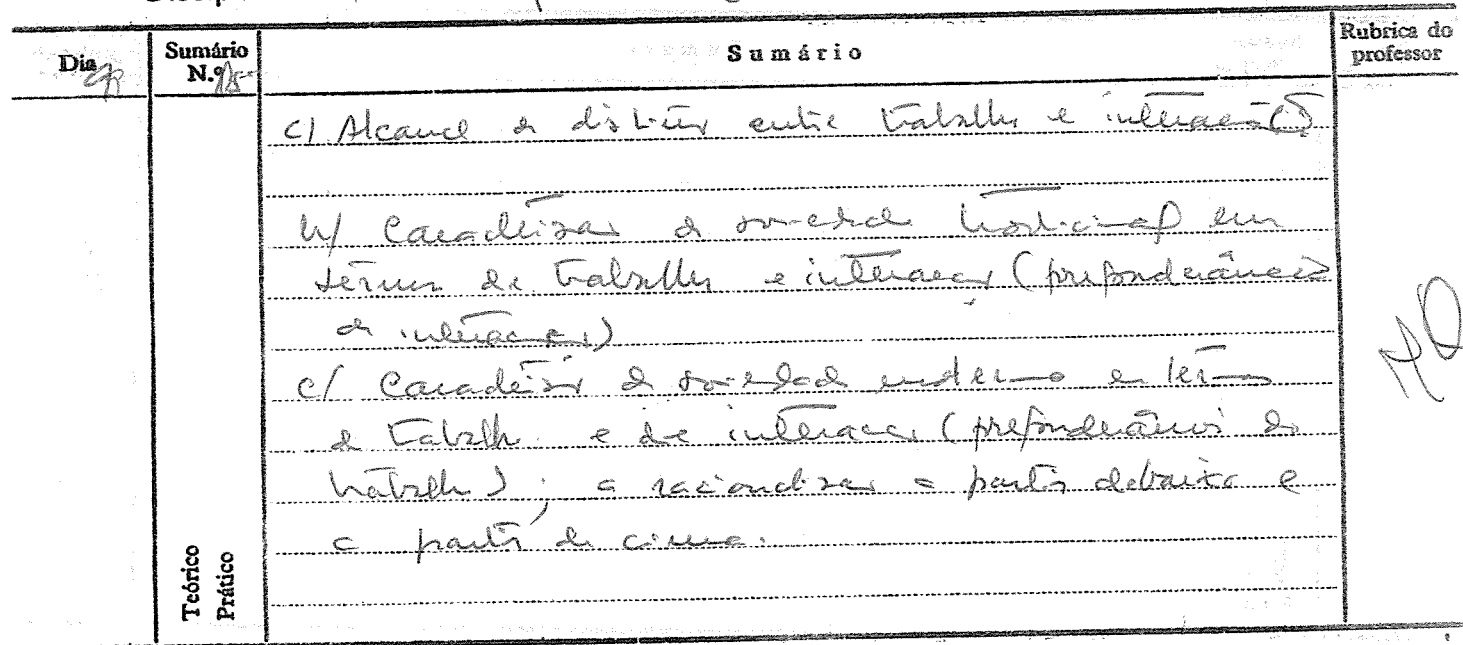 Dia
Sumário N.º
Sumário
Rubrica do professor
c) Alcance da distinção entre trabalho e interacção
b/ Caracterização da sociedade tradicional em
termos de trabalho e interacção (preponderância
da interacção)
c/ Caracterização da sociedade moderna em termos
de trabalho e de interacção (preponderância do
trabalho); a racionalização a partir de baixo e
a partir de cima.
Teórico
Prático